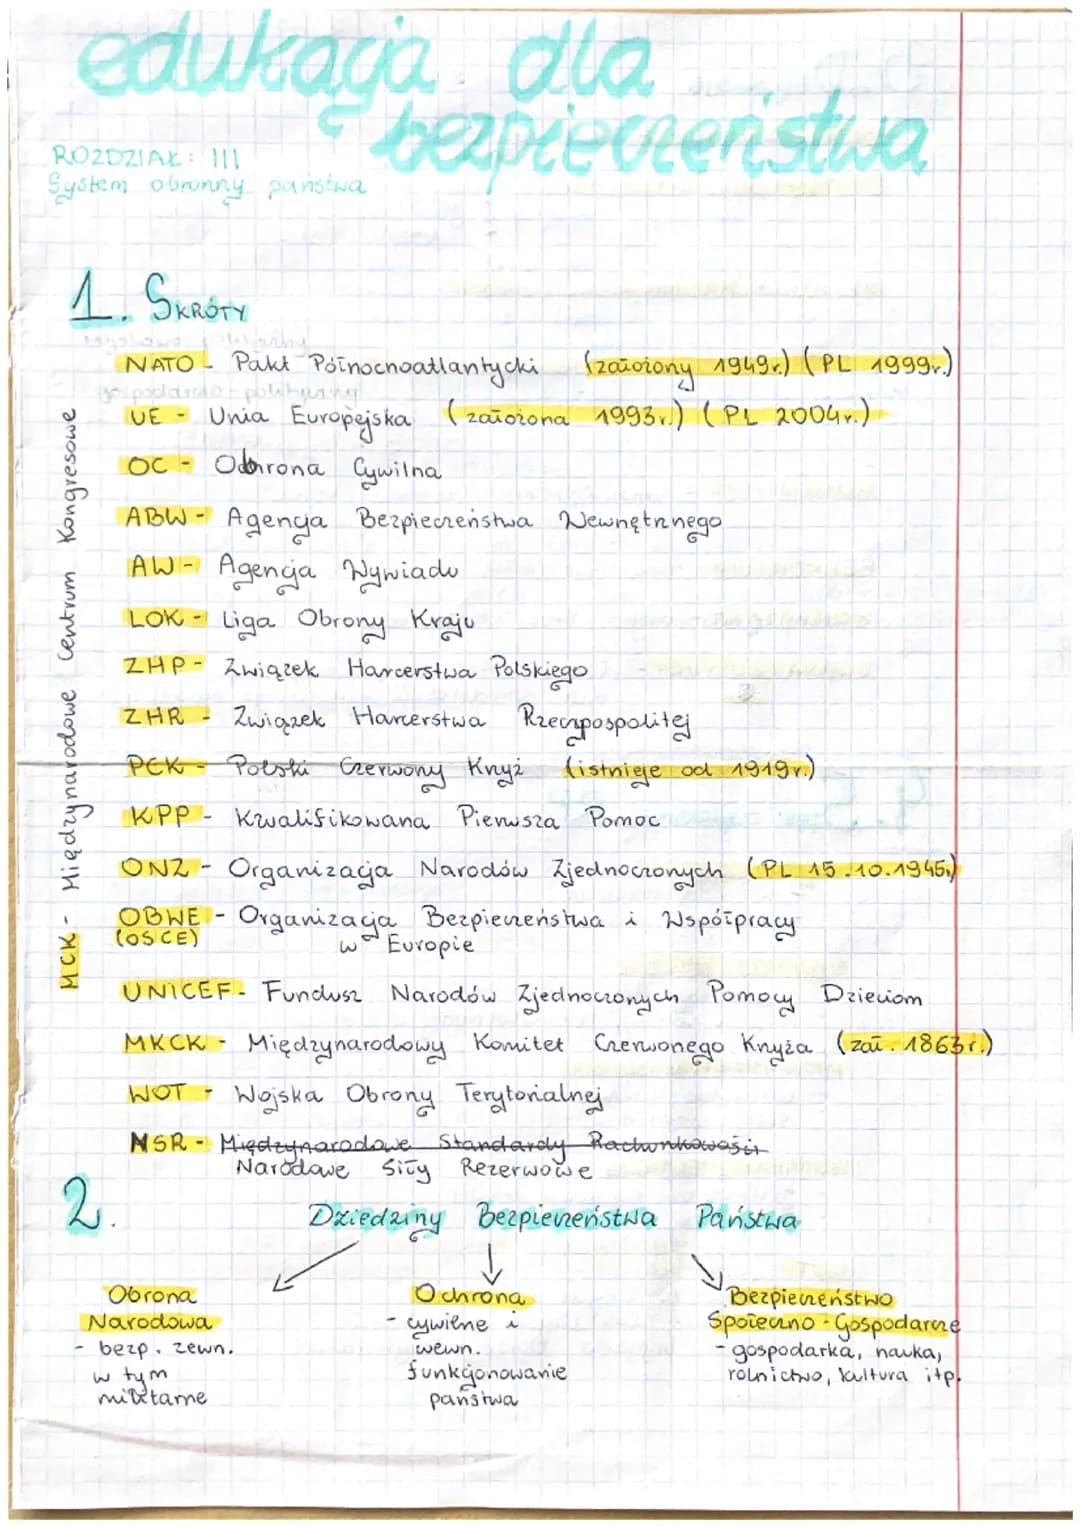 edukacja dla
bezpieczeństwa
ROZDZIAŁ: III
System obronny państwa
1. SKRÓTY
NATO - Pakt Północnoatlantycki (założony 1949r.) (PL 1999r.)
UE - Unia Europejska (założona 1993r.) (PL 2004r.)
OC - Obrona Cywilna
ABW - Agencja Bezpieczeństwa Wewnętrznego
AW - Agencja Wywiadu
LOK - Liga Obrony Kraju
ZHP - Związek Harcerstwa Polskiego
ZHR - Związek Harcerstwa Rzeczpospolitej
PCK - Polski Czerwony Krzyż (istnieje od 1919r.)
KPP - Kwalifikowana Pierwsza Pomoc
ONZ - Organizacja Narodów Zjednoczonych (PL 15.10.1945r.)
OBWE - Organizacja Bezpieczeństwa i Współpracy
(OSCE) w Europie
UNICEF - Fundusz Narodów Zjednoczonych Pomocy Dzieciom
MKCK - Międzynarodowy Komitet Czerwonego Krzyża (zał. 1863r.)
WOT - Wojska Obrony Terytorialnej
NSR - Międzynarodowe Standardy Rachunkowości
Narodowe Siły Rezerwowe
MCK - Międzynarodowe Centrum Kongresowe
2. Dziedziny Bezpieczeństwa Państwa
Obrona
Narodowa
- bezp. zewn.
w tym
militarne
Ochrona
- cywilne i
wewn.
funkcjonowanie
państwa
Bezpieczeństwo
Społeczno - Gospodarcze
- gospodarka, nauka,
rolnictwo, kultura itp.